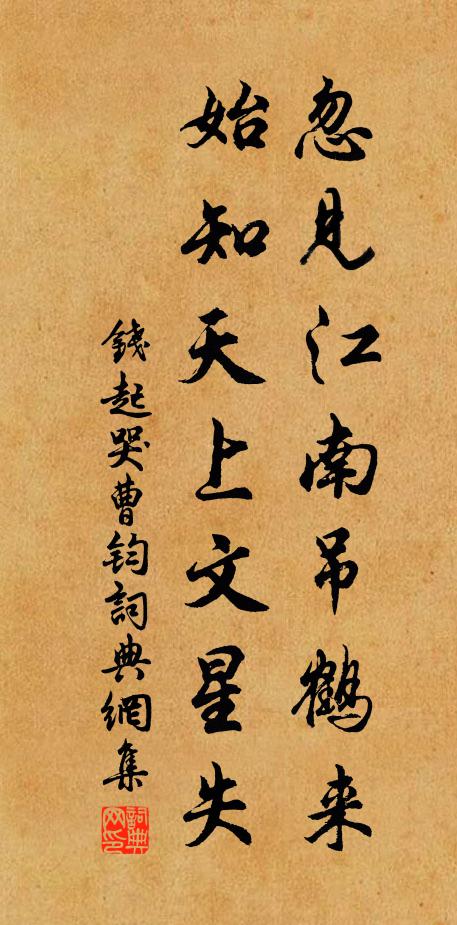 忽見江南吊鶴来
始知天上文星失
錢起哭曹鈞詞典網集
詞典网印